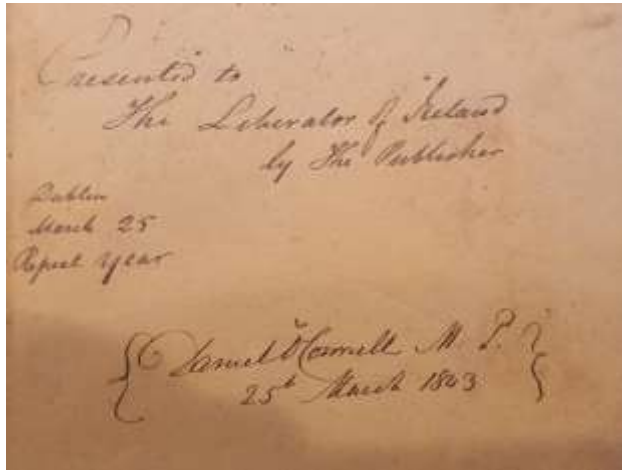 Presented to
The Liberator of Ireland
by The Publisher
Dublin
March 25
Repeal year
Daniel O'Connell M. P.
25th March 1843